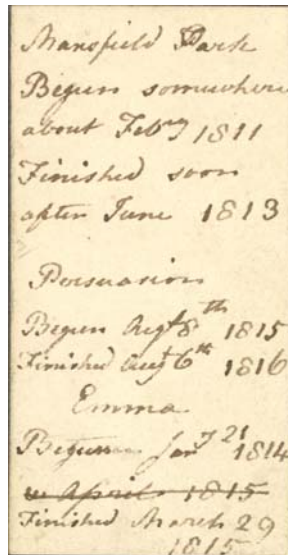 Mansfield Park
Begun somewhere
about Febry 1811
Finished soon
after June 1813
Persuasion
Begun Augt 8th 1815
Finished Augt 6th 1816
Emma
Begun Jany 21 1814
April 1815
Finished March 29
1815